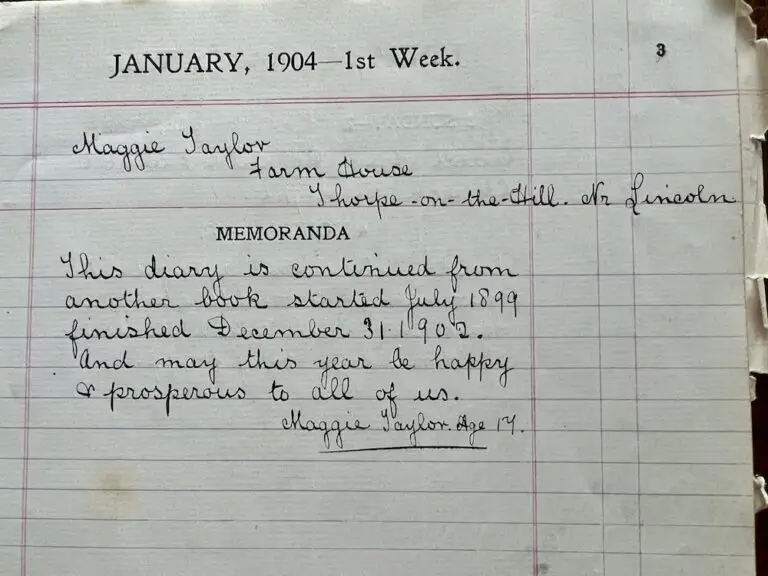 JANUARY, 1904—1st Week.
3
Maggie Taylor
Farm House
Thorpe-on-the-Hill. Nr Lincoln
MEMORANDA
This diary is continued from
another book started July 1899
finished December 31. 1902.
And may this year be happy
& prosperous to all of us.
Maggie Taylor. Age 17.